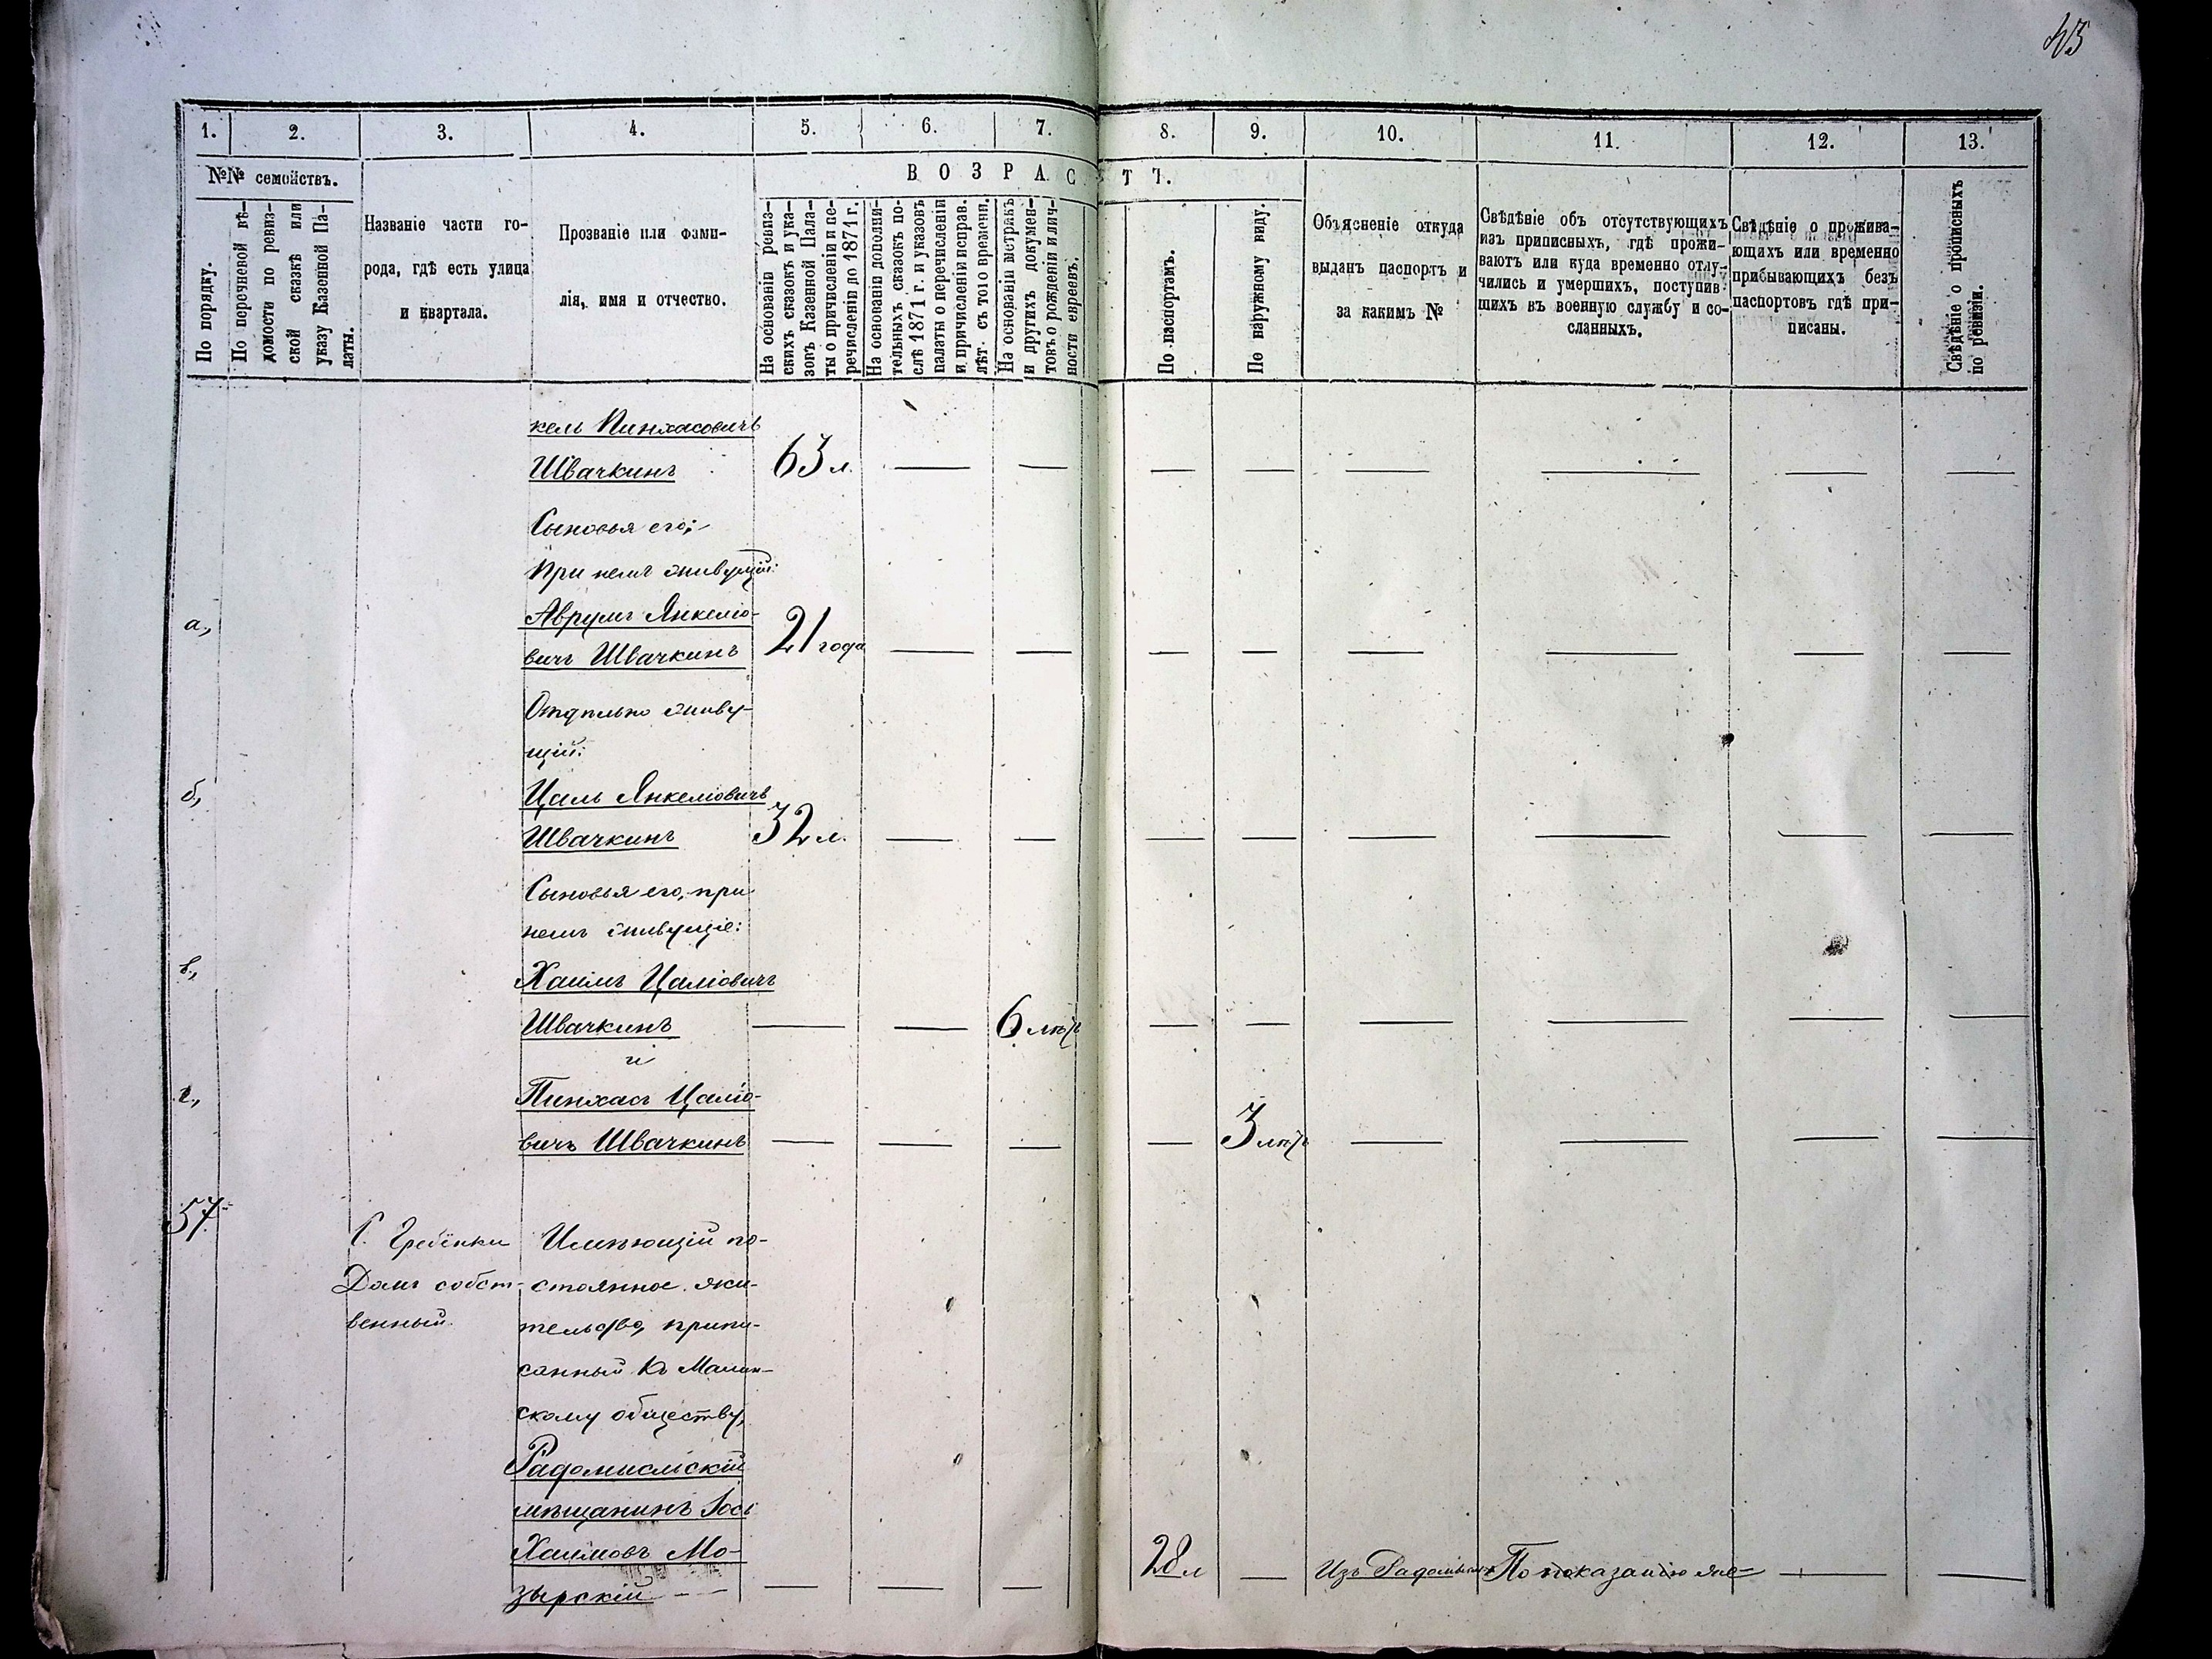 43
1. 2. 3. 4. 5. 6. 7. 8. 9. 10. 11. 12. 13.
№№ семействъ.
ВОЗРАСТЪ.
По порядку.
По перечневой вѣ-
домости по ревиз-
ской сказкѣ или
указу Казенной Па-
латы.
Названіе части го-
рода, гдѣ есть улица
и квартала.
Прозваніе или фами-
лія, имя и отчество.
На основаніи ревиз-
скихъ сказокъ и ука-
зовъ Казенной Пала-
ты о причисленіи и пе-
речисленіи до 1871 г.
На основаніи дополни-
тельныхъ сказокъ по-
слѣ 1871 г. и указовъ
палаты о перечисленіи
и причисленіи исправ.
лѣт. съ того времени.
На основаніи метрикъ
и другихъ докумен-
товъ о рожденіи и лич-
ности евреевъ.
По паспортамъ.
По наружному виду.
Объясненіе откуда
выданъ паспортъ и
за какимъ №
Свѣдѣніе объ отсутствующихъ
изъ приписныхъ, гдѣ прожи-
ваютъ или куда временно отлу-
чились и умершихъ, поступив-
шихъ въ военную службу и со-
сланныхъ.
Свѣдѣніе о прожива-
ющахъ или временно
прибывающихъ безъ
паспортовъ гдѣ при-
писаны.
Свѣдѣніе о прописныхъ
по ревизіи.
кель Пинхасовичъ
Швачкинъ 63 л. — — — — — — — —
Сыновья его:
При немъ живущій:
а., Аврумъ Янкеліо-
вичъ Швачкинъ 21 года — — — — — — — —
Отдѣльно живу-
щій:
б., Цаль Янкеліовичъ
Швачкинъ 32 л. — — — — — — — —
Сыновья его, при
немъ живущіе:
в., Хаимъ Цаліовичъ
Швачкинъ — — 6 лѣтъ — — — — — —
и
г., Пинхасъ Цаліо-
вичъ Швачкинъ — — — — 3 лѣтъ — — — —
57.
С. Гребенки Имѣющій по-
Домъ собст- стоянное жи-
венный. тельство, припи-
санный къ Малин-
скому обществу,
Радомысльскій
мѣщанинъ Іось
Хаимовъ Мо-
зырскій — — — 28 л — Изъ По показанію — —